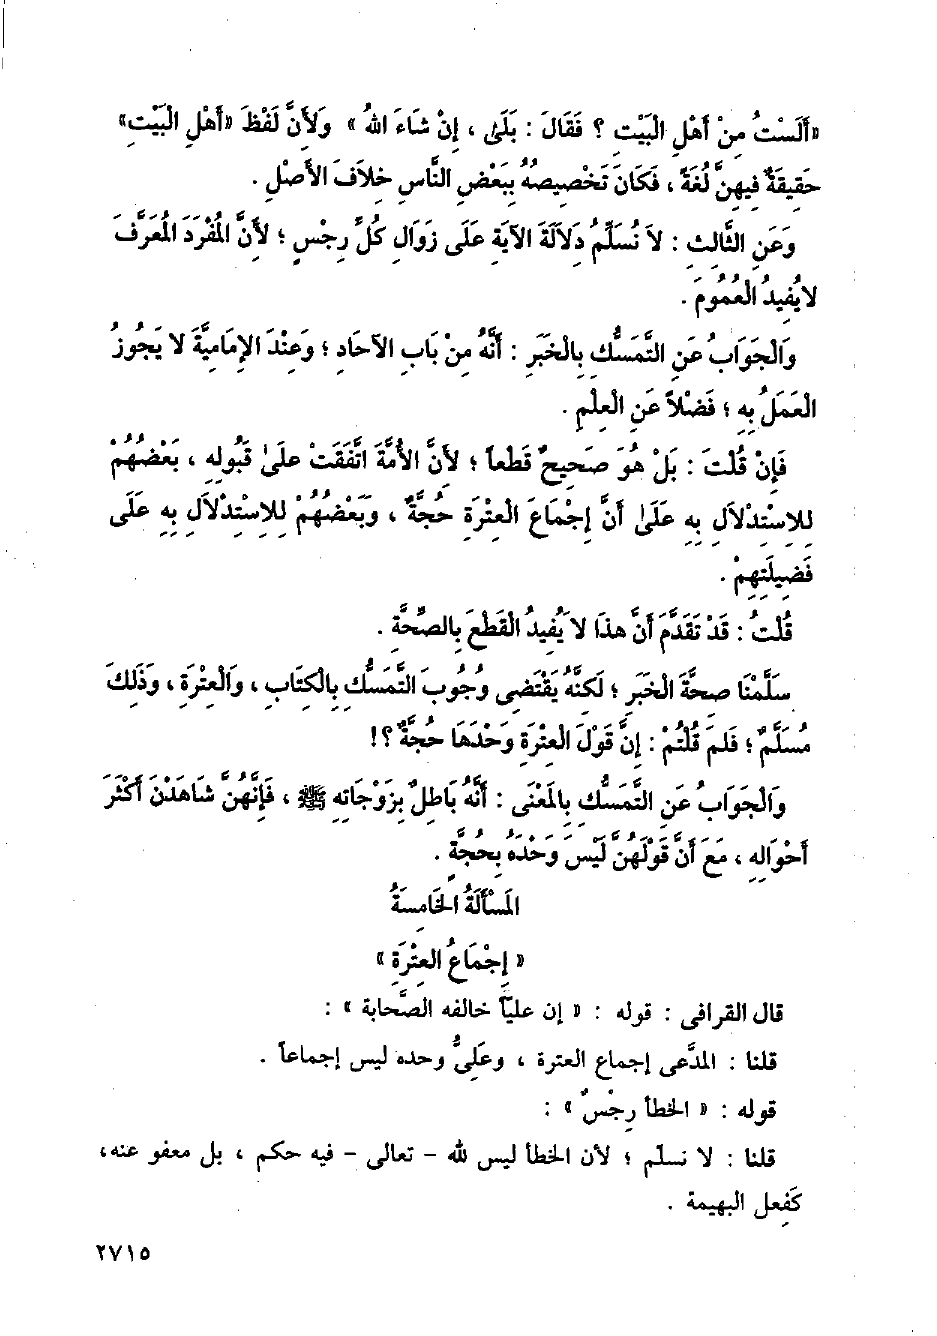 «أَلَسْتُ مِنْ أَهْلِ البَيْتِ ؟ فَقَالَ : بَلَىٰ ، إِنْ شَاءَ اللهُ » وَلأَنَّ لَفْظَ «أَهْلِ الْبَيْتِ»
حَقِيقَةٌ فِيهِنَّ لُغَةً ، فَكَانَ تَخْصِيصُهُ بِبَعْضِ النَّاسِ خِلاَفَ الأَصْلِ .
وَعَنِ الثَّالِثِ : لاَ نُسَلِّمُ دِلاَلَةَ الآيَةِ عَلَى زَوَالِ كُلِّ رِجْسٍ ؛ لأَنَّ المُفْرَدَ المُعَرَّفَ
لا يُفِيدُ الْعُمُومَ .
وَالْجَوَابُ عَنِ التَّمَسُّكِ بِالخَبَرِ : أَنَّهُ مِنْ بَابِ الآحَادِ ؛ وَعِنْدَ الإِمَامِيَّةِ لا يَجُوزُ
العَمَلُ بِهِ ؛ فَضْلاً عَنِ الْعِلْمِ .
فَإِنْ قُلْتَ : بَلْ هُوَ صَحِيحٌ قَطْعاً ؛ لأَنَّ الأُمَّةَ اتَّفَقَتْ عَلَىٰ قَبُولِهِ ، بَعْضُهُمْ
لِلاِسْتِدْلاَلِ بِهِ عَلَىٰ أَنَّ إِجْمَاعَ الْعِتْرَةِ حُجَّةٌ ، وَبَعْضُهُمْ لِلاِسْتِدْلاَلِ بِهِ عَلَى
فَضِيلَتِهِمْ .
قُلْتُ : قَدْ تَقَدَّمَ أَنَّ هذَا لا يُفِيدُ الْقَطْعَ بِالصِّحَّةِ .
سَلَّمْنَا صِحَّةَ الْخَبَرِ ؛ لَكِنَّهُ يَقْتَضِي وُجُوبَ التَّمَسُّكِ بِالْكِتَابِ ، وَالْعِتْرَةِ ، وَذَلِكَ
مُسَلَّمٌ ؛ فَلِمَ قُلْتُمْ : إِنَّ قَوْلَ الْعِتْرَةِ وَحْدَهَا حُجَّةٌ ؟!
وَالْجَوَابُ عَنِ التَّمَسُّكِ بِالمَعْنَى : أَنَّهُ بَاطِلٌ بِزَوْجَاتِهِ ﷺ ، فَإِنَّهُنَّ شَاهَدْنَ أَكْثَرَ
أَحْوَالِهِ ، مَعَ أَنَّ قَوْلَهُنَّ لَيْسَ وَحْدَهُ بِحُجَّةٍ .
المَسْأَلَةُ الخَامِسَةُ
« إِجْمَاعُ العِتْرَةِ »
قال القرافى : قوله : « إن علياً خالفه الصَّحابة » :
قلنا : المدَّعى إجماع العترة ، وعَلِيٌّ وحده ليس إجماعاً .
قوله : « الخطأ رِجْسٌ » :
قلنا : لا نسلّم ؛ لأن الخطأ ليس لله - تعالى - فيه حكم ، بل معفو عنه،
كَفِعل البهيمة .
٢٧١٥